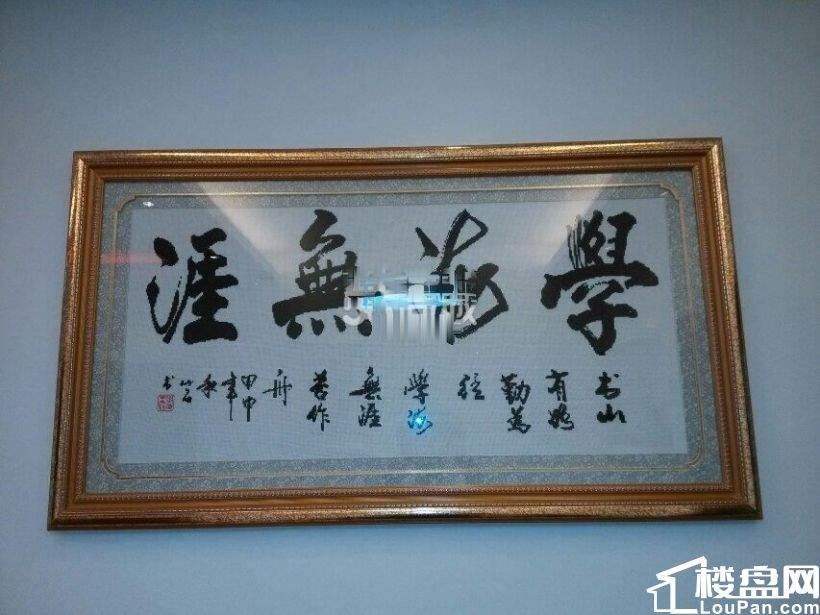 學海無涯
书山
有路
勤為
径
學海
無涯
苦作
舟
甲申
年
秋
书
楼盘网
LouPan.com